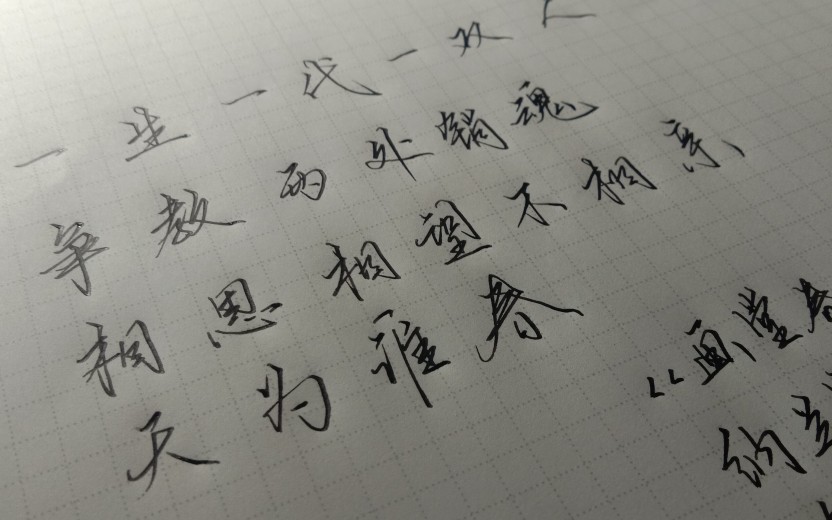 一生一代一双人
争教两处销魂
相思相望不相亲、
天为谁春
“画堂春
纳